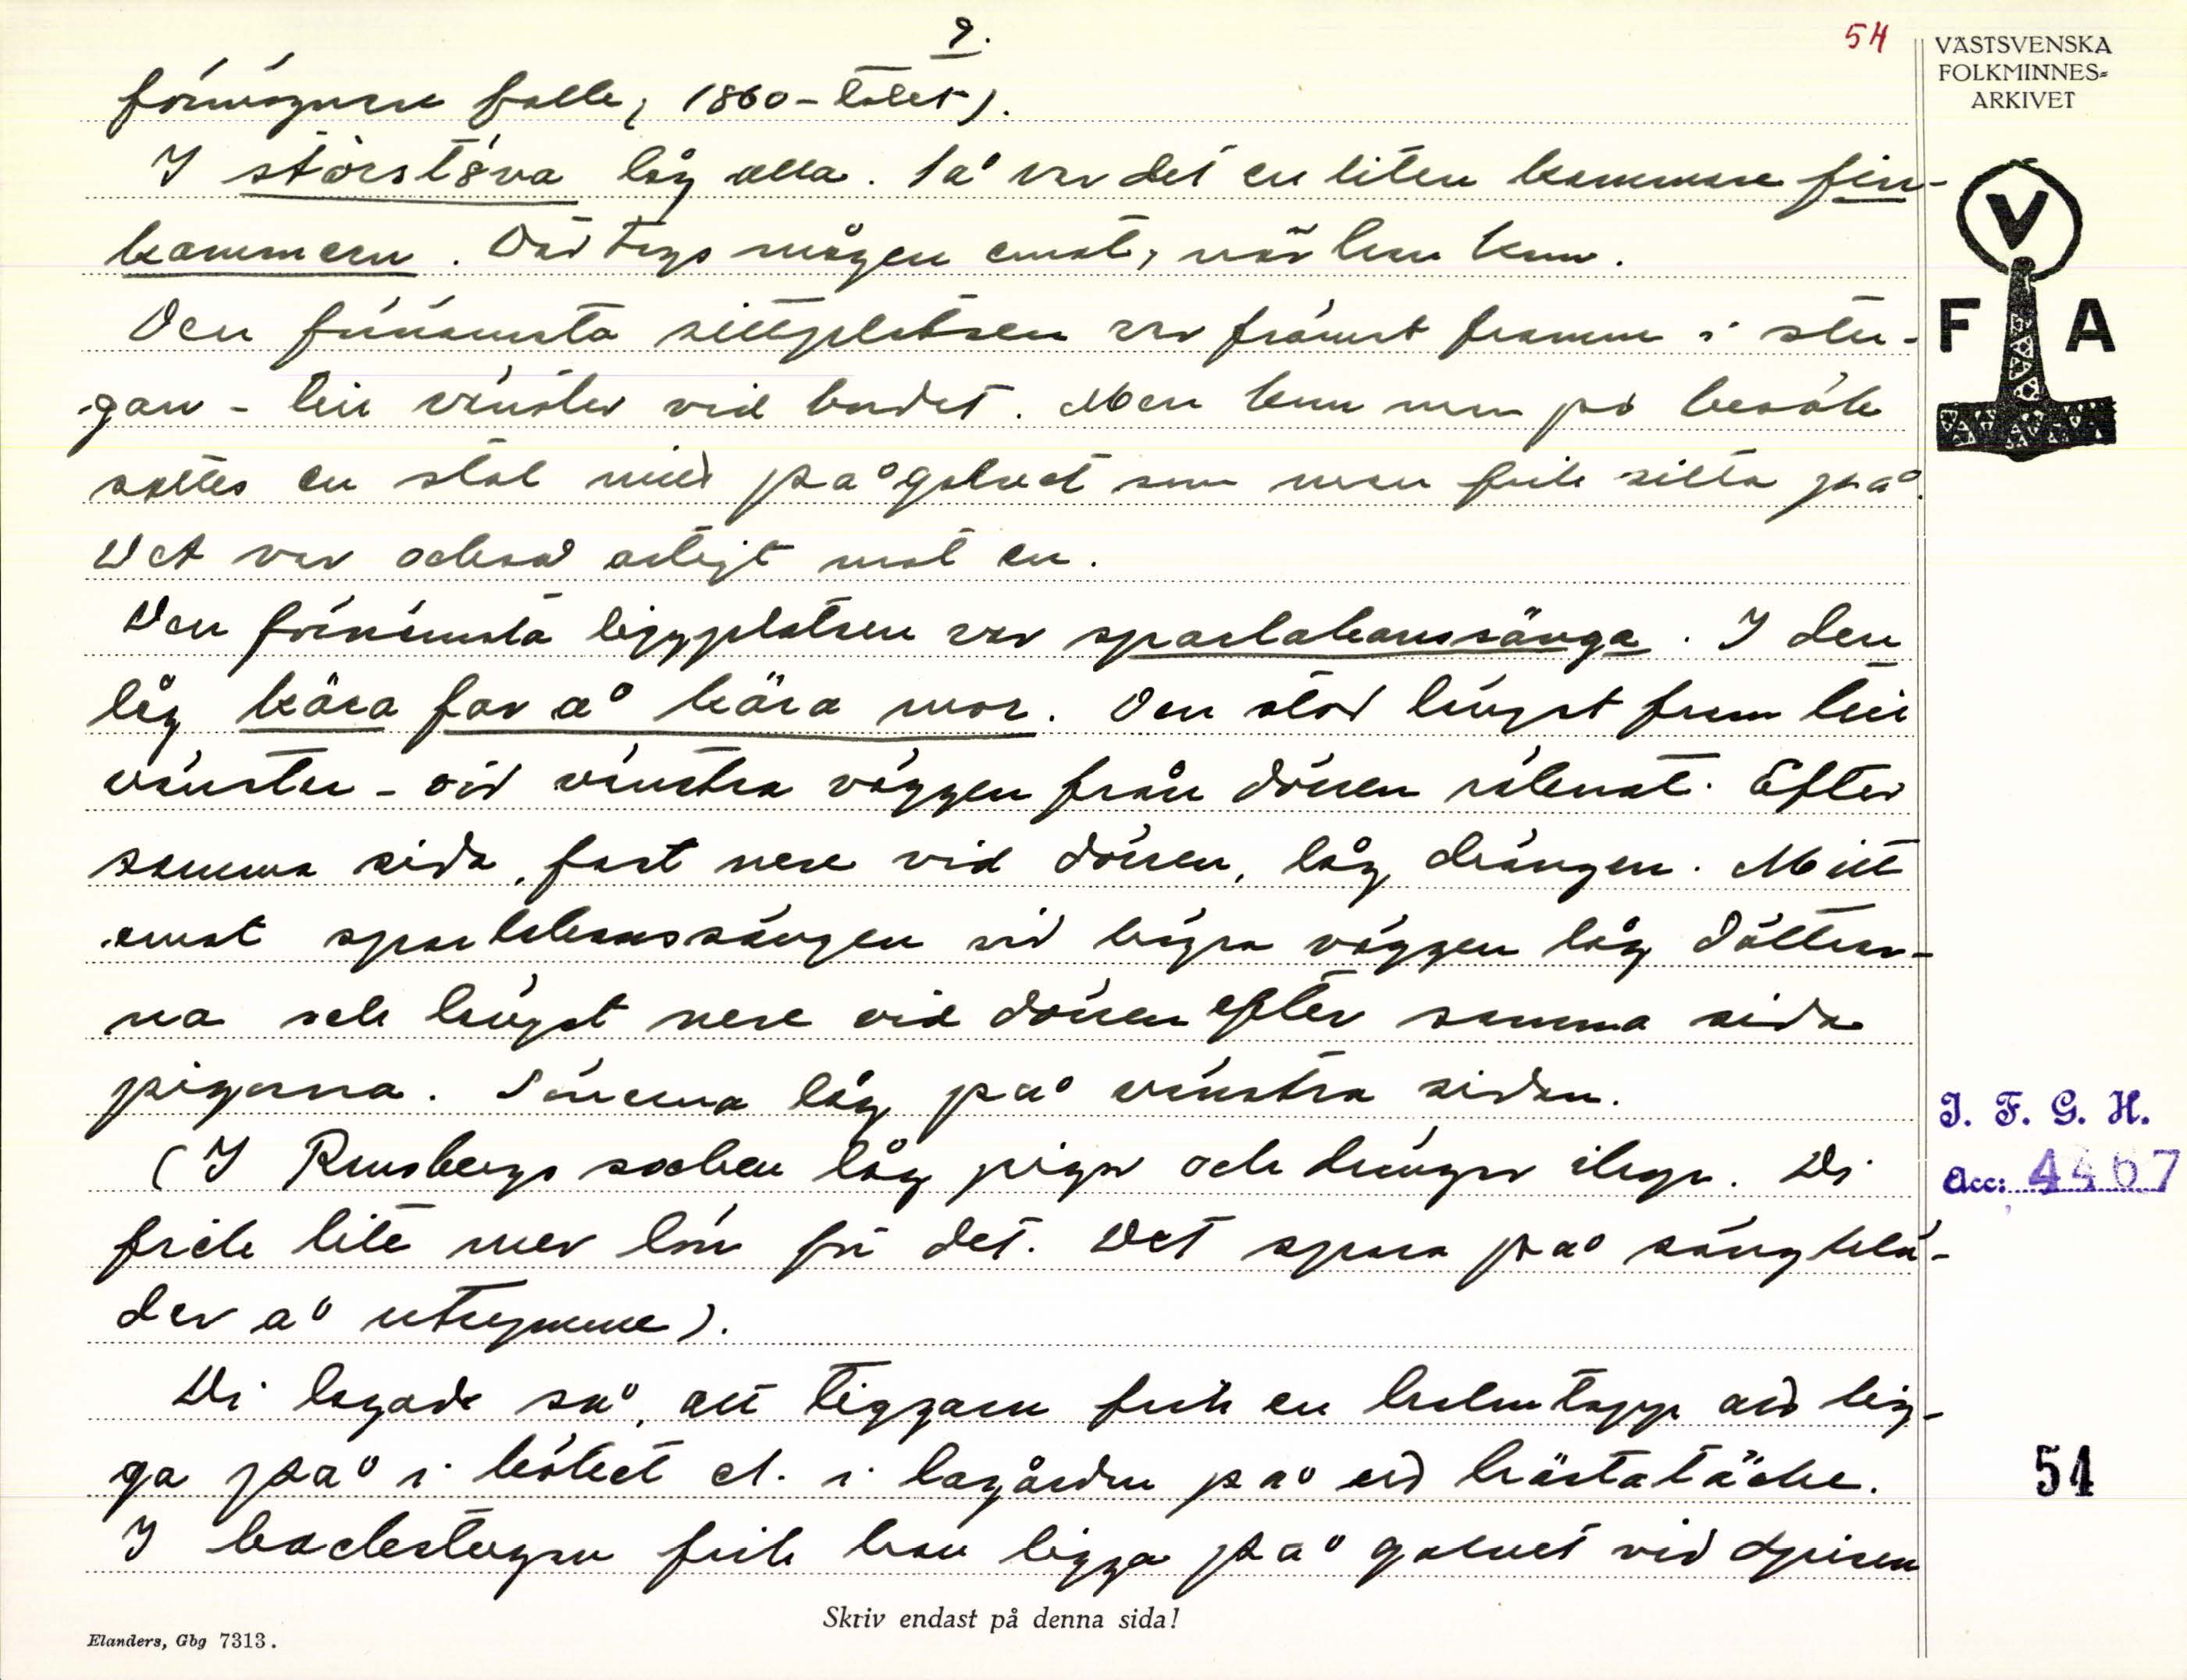 9.
54
VÄSTSVENSKA
FOLKMINNES-
ARKIVET
förmögnare folk, 1860-talet).
I störstôva låg alla. Så var det en liten kammare fin-
kammern. Där togs mågen emot, när han kom.
Den förnämsta sittplatsen var främst framme i stu-
gan - till vänster vid bordet. Men kom man på besök
sattes en stol mitt på golvet som man fick sitta på.
Det var också artigt mot en.
Den förnämsta liggplatsen var sparlakanssänga. I den
låg kära far å kära mor. Den stod längst fram till
vänster - vid vänstra väggen från dörren räknat. Efter
samma sida, fast nere vid dörren, låg drängen. Mitt
emot sparlakanssängen vid högra väggen låg döttrar-
na och längst nere vid dörren efter samma sida
pigorna. Sönerna låg på vänstra sidan.
(I Romsbergs socken låg pigor och drängar ihop. Di
fick lite mer lön för det. Det spara på sängklä-
der å utrymme).
Di lagade så, att tiggarn fick en halmtapp att lig-
ga på i köket el. i lagården på ett hästatäcke.
I backstugan fick han ligga på golvet vid spisen
V
F A
I. F. G. H.
Acc: 4467
54
Skriv endast på denna sida!
Elanders, Gbg 7313.